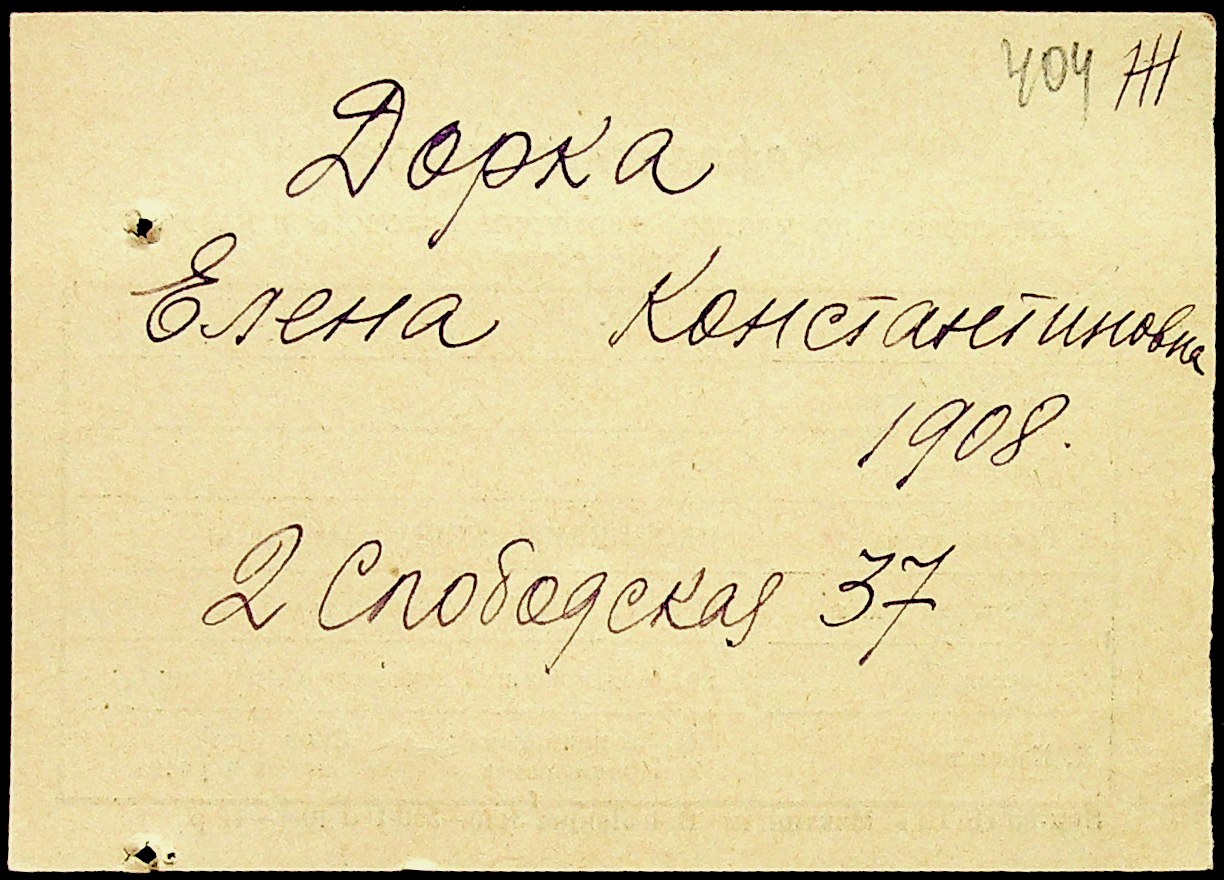 404 Ж
Дорка
Елена Константиновна
1908.
2 Слободская 37